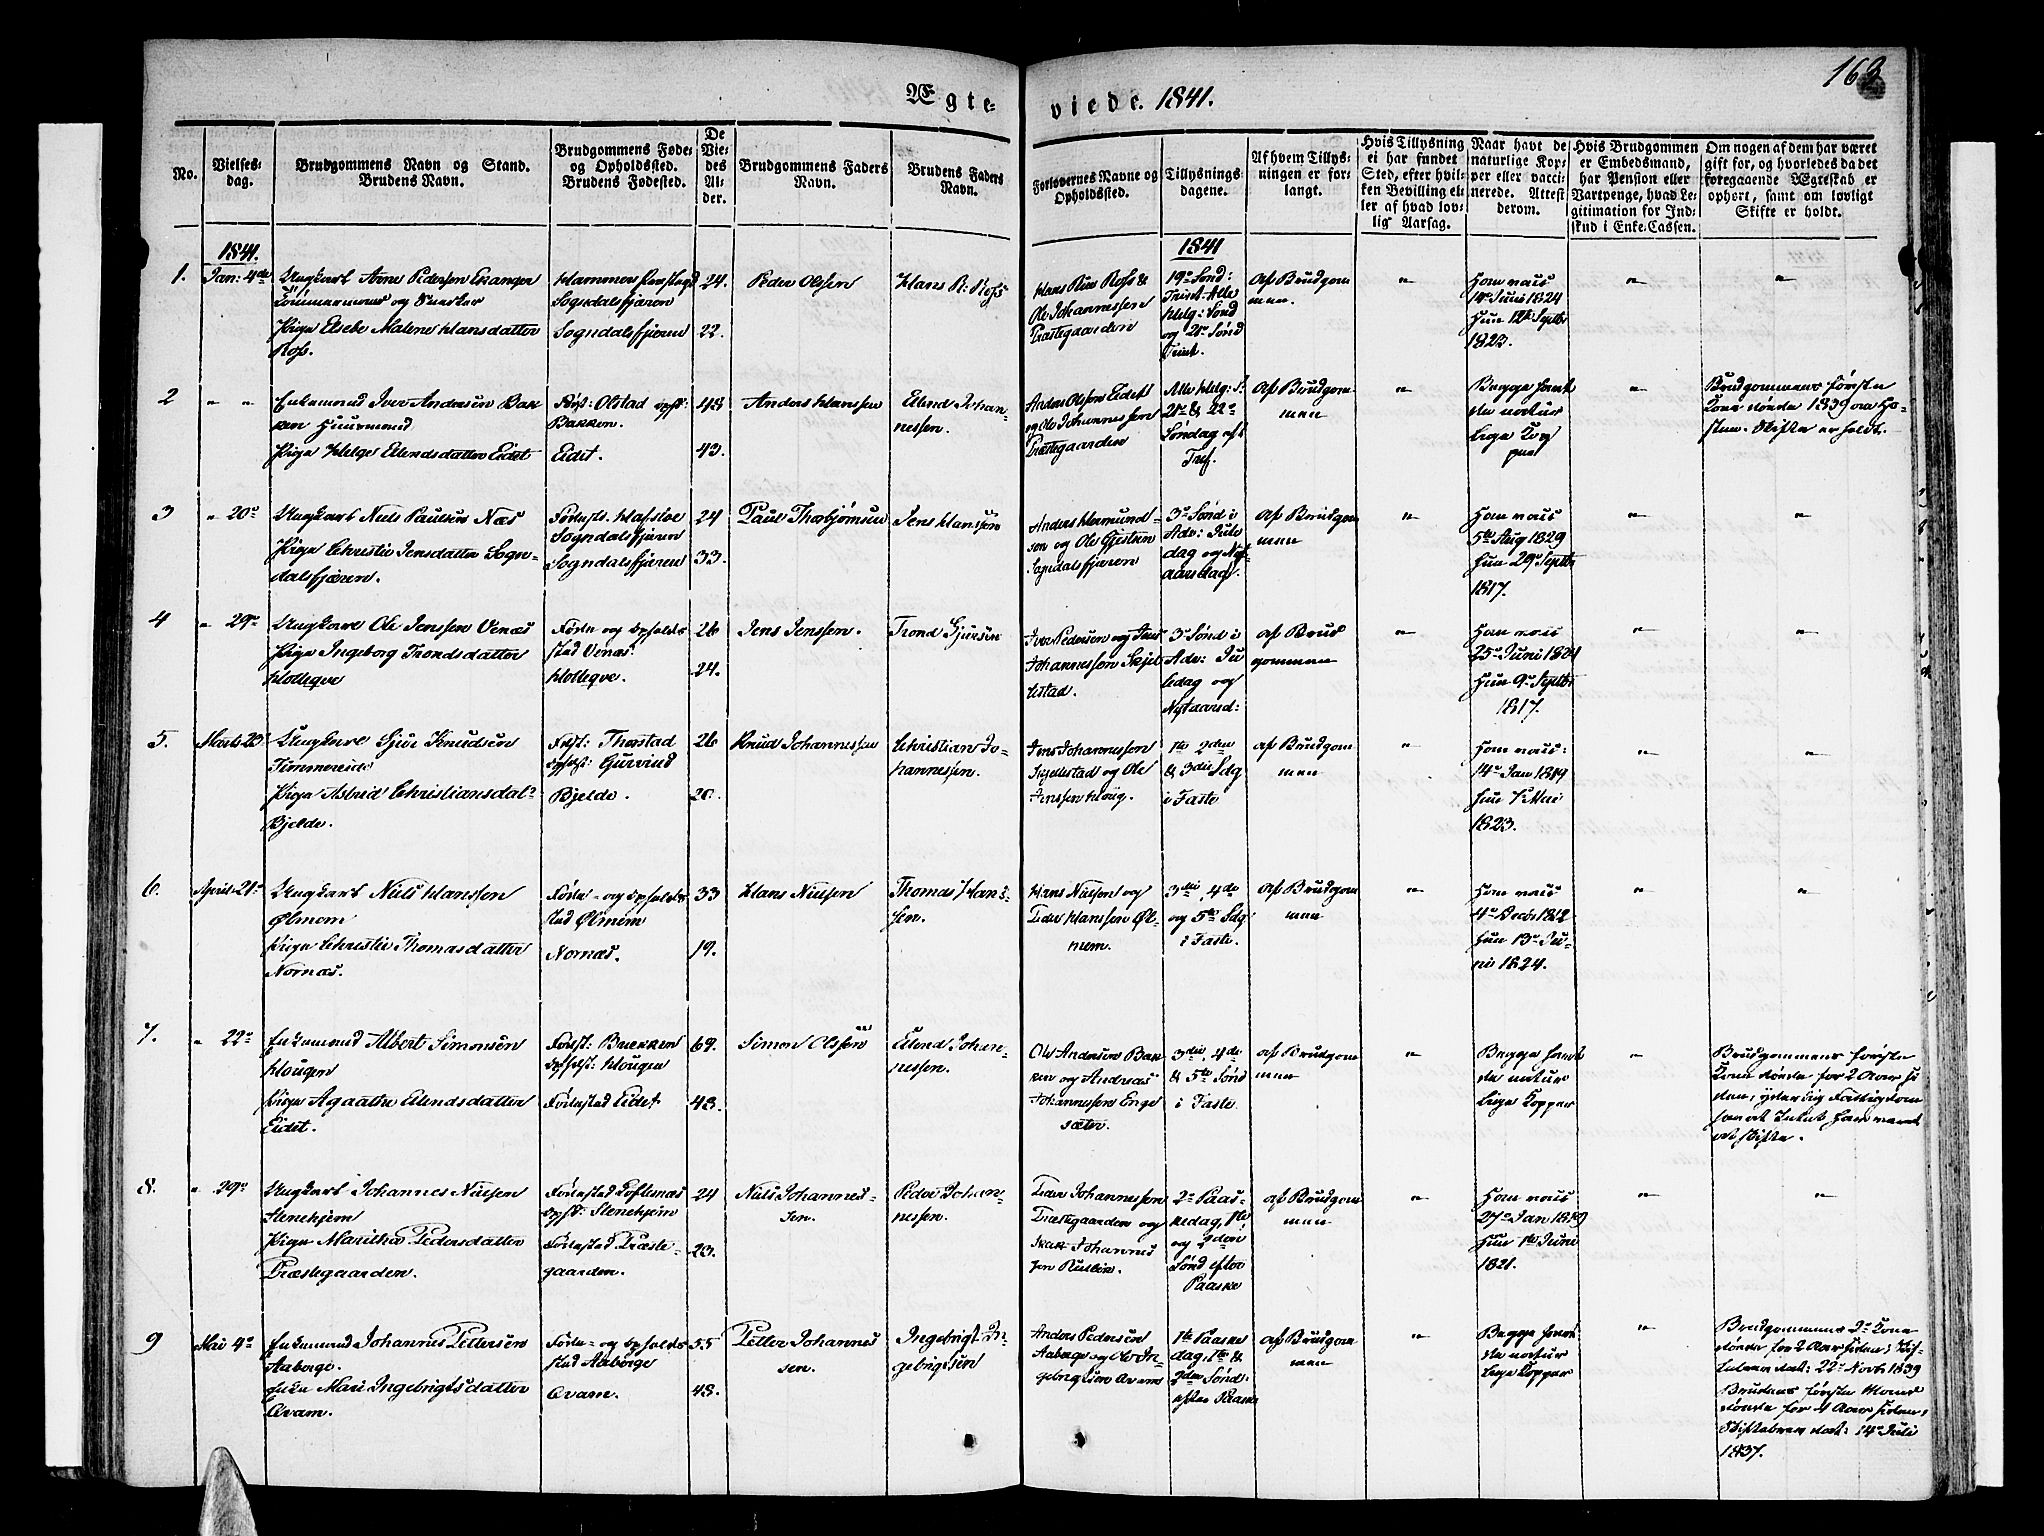 163
Ægte-
viede. 1841.
No.
Vielses-
dag.
Brudgommens Navn og Stand.
Brudens Navn.
Brudgommens Føde-
og Opholdssted.
Brudens Fødested.
De
Vie-
des
Al-
der.
Brudgommens Faders
Navn.
Brudens Faders
Navn.
Forlovernes Navne og
Opholdssted.
Tillysnings-
dagene.
Af hvem Tillys-
ningen er for-
langt.
Hvis Tillysning
ei har fundet
Sted, efter hvil-
ken Bevilling el-
ler af hvad lov-
lig Aarsag.
Naar havt de
naturlige Kop-
per eller vacci-
nerede. Attest
derom.
Hvis Brudgommen
er Embedsmand,
har Pension eller
Vartpenge, hvad Le-
gitimation for Ind-
skud i Enke-Cassen.
Om nogen af dem har været
gift for, og hvorledes da det
foregaaende Ægteskab er
ophørt, samt om lovligt
Skifte er holdt.
1841.
1841
1. Jan: 4de
Ungkarl Arne Pedersen
Pige Elsebe Malene Hansdatter
Sogndalsfjæren
Sogndalsfjæren
24.
22.
Peder Olssen
Hans R:
Ole Johannessen
Præstegaarden
19de Sønd:
Trint. Alle
Helg: Sønd
og 21de Sønd
Trint.
af Brudgom
men.
"
Ham vacc
Juni 1824
Hun 12te Septbr
1823.
"
"
2 " "
Enkemand Iver Andersen Bak
ken Huusmand
Pige Helge Ellendsdatter Eidet
Fødst: Olstad opst:
Bakken.
Eidet.
48
43.
Anders Hanssen
Ellend Johan-
nessen.
Anders Olssen Eidet
og Ole Johannessen
Præstegaarden
Alle Helg: S.
21de & 22de
Søndag eft
Tref.
af Brudgom
men
"
Begge havt
de natur
lige Kop
per
"
Brudgommens første
Kone døde 1839
Skifte er holdt.
3 " 20de
Ungkarl Niels Paulsen Næs
Pige Christie Jensdatter Sogn-
dalsfjæren.
Sogndalsfjæren
Sogndalsfjæren
24
33.
Paul Thorbjørnsen
Jens Hanssen
Anders Hermund-
sen og Ole
Sogndalsfjæren
3de Sønd i
Adv: Jule
dag og Nyt-
aarsdag.
af Brudgom
men
"
Ham vacc
5te Aug 1829
Hun 29de Septbr
1817.
"
"
4 " 29de
Ungkarl Ole Jenssen Venæs
Pige Ingeborg Trondsdatter
Føde- og Opholds
sted Venæs.
26
24.
Jens Jenssen.
Trond Sjursen
Iver Pedersen og Jens
Johannessen Skjel
lestad.
3de Sønd i
Adv: Ju
ledag og
Nytaarsd:
af Brud
gommen
"
Ham vacc
25de Juni 1821
Hun 9de Septbr
1817.
"
"
5. Marts 23de
Ungkarl Sjur Knudsen
Timmereide
Pige Astrid Christiansdatr
Bjelde.
Fødst: Thorstad
Bjelde.
26
20.
Knud Johannessen
Christian Jo-
hannessen.
Jens Johannessen
Skjellestad og Ole
Jenssen Houg.
1ste 2den
& 3die Sdg
i Faste
af Brudgom
men
"
Ham vacc:
14de Jan 1819
Hun 7 Mai
1823.
"
"
6. April 21de
Ungkarl Niels Hanssen
Ølmem
Pige Christie Thomasdatter
Nornæs.
Føde- og Opholds
sted Ølmem
Nornæs.
33
19.
Hans Nielsen
Thomas Hans-
sen.
Hans Nielsen og
Peder Hanssen Øl-
mem.
3die, 4de
og 5te Sdg
i Faste.
af Brudgom
men
"
Ham vacc
4de Decbr 1812
Hun 13de Ju-
ni 1824.
"
"
7. " 22de
Enkemand Albert Simonsen
Hougen
Pige Agathe Ellendsdatter
Eidet.
Fødst: Brekken
Opholst: Hougen
Fødested Eidet
69.
48.
Simon Olssen
Ellend Johan-
nessen.
Ole Andersen Bak
ken og Andreas
Johannessen Enge
sæter.
3die, 4de
& 5te Sønd
i Faste
af Brudgom
men
"
Begge havt
de natur
lige Kopper
"
Brudgommens første
Kone døde for 2 Aar si
den, yderlig Fattigdom
8. " 29de
Ungkarl Johannes Nielsen
Stenehjem
Pige Maritha Pedersdatter
Præstegaarden.
Fødested Loftesnæs
Opst: Stenehjem
Fødested Præste-
gaarden.
24
20.
Niels Johannes-
sen.
Peder Johan-
nessen.
Peder Johannessen
Præstegaarden og
Isak Johannes
sen
2de Paas-
kedag, 1ste
og 2den
Sønd efter
Paaske
af Brudgom
men
"
Ham vacc
27de Jan 1819
Hun 1ste Juni
1821.
"
"
9 Mai 4de
Enkemand Johannes Pettersen
Aaberge.
Enke Mari Ingebrigtsdatter
Qvam.
Føde- og Opholds
sted Aaberge
Qvam.
55
48.
Petter Johannes
sen.
Ingebrigt In-
gebrigtsen
Anders Pedersen
Aaberge og Ole In-
gebrigtsen Qvam
1ste Paaske
dag, 1ste &
2den Sønd:
efter Paaske
af Brudgom
men
"
Begge havt
de natur
lige Kopper
"
Brudgommens 2de Kone
døde for 2 Aar siden; Skif-
tebrev dat: 22de Novbr 1839
Brudens første Mand
døde for 4 Aar siden,
Skiftebrev dat: 14de Juli
1837.